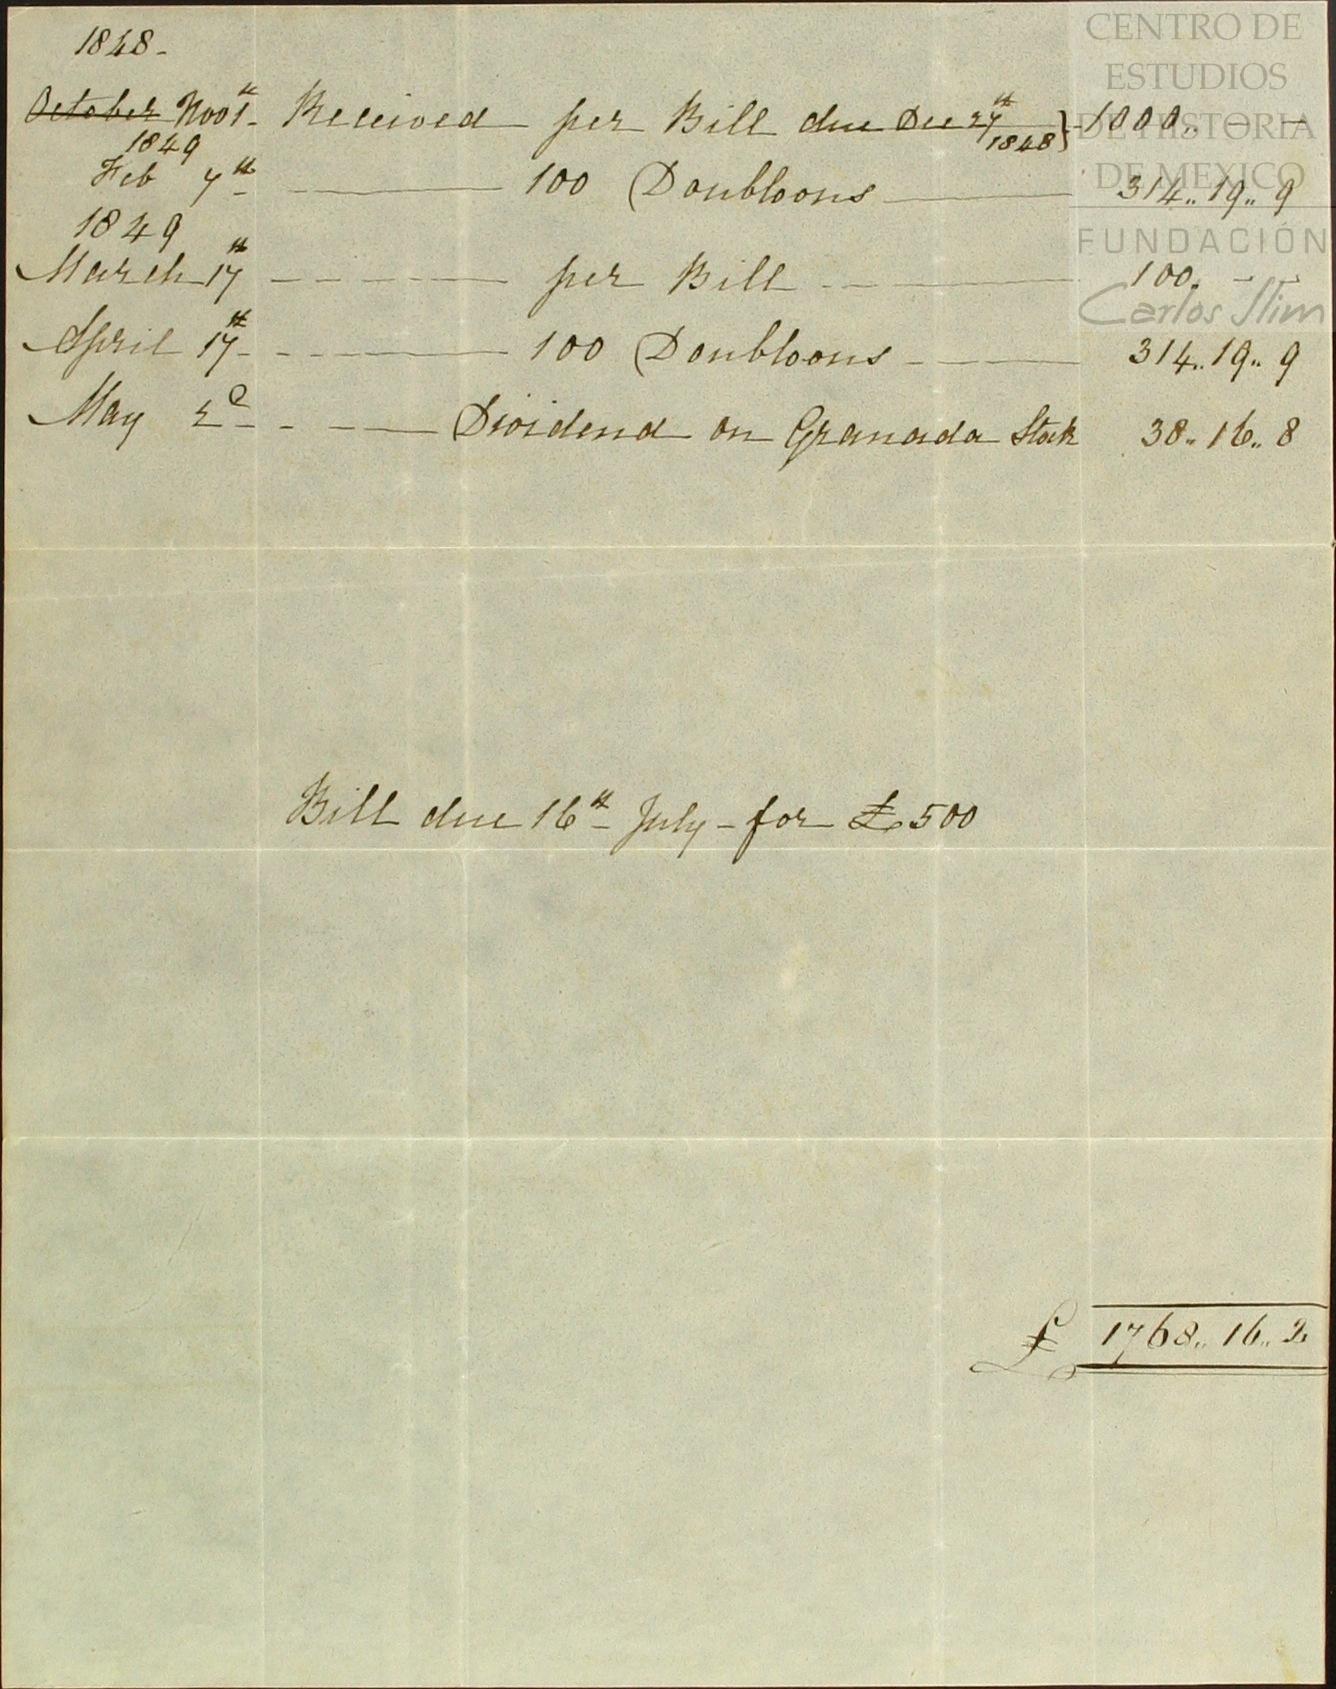 1848-
October Nov 1st - Received per Bill due Dec 27th 1848 } - 1000.. — —
1849
Feb 7th — 100 Doubloons — 314.. 19.. 9
1849
March 17th - - - - — per Bill - - — 100. - -
April 17th - - - - — 100 Doubloons - — 314.. 19.. 9
May 2d - - - — Dividend on Granada Stock 38.. 16.. 8
Bill due 16th July - for £500
£ 1768.. 16.. 2
CENTRO DE
ESTUDIOS
DE HISTORIA
DE MEXICO
FUNDACIÓN
Carlos Slim